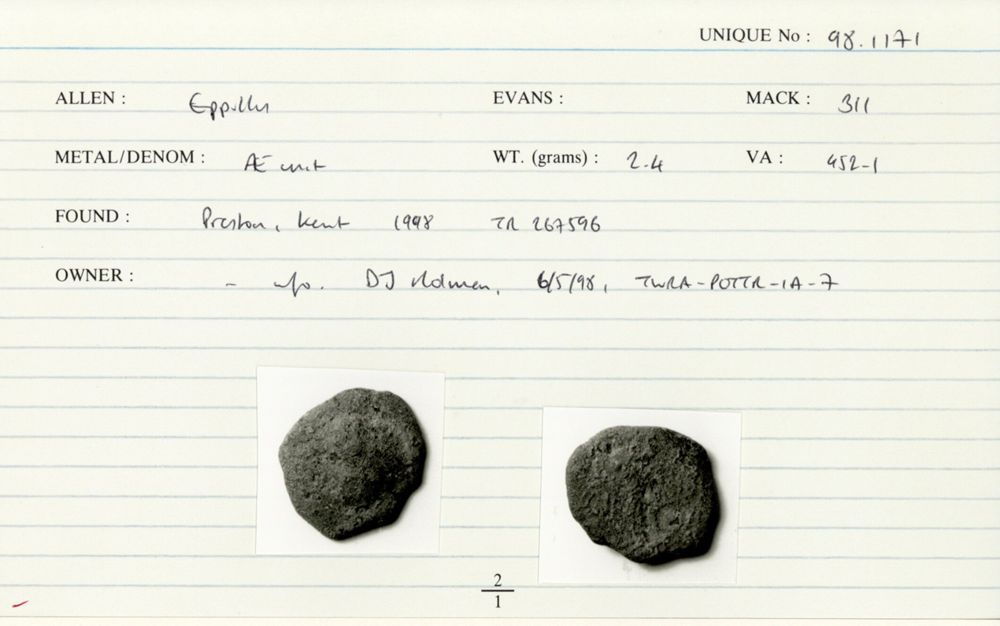 UNIQUE No : 98.1171
ALLEN : Eppillus EVANS : MACK : 311
METAL/DENOM : Æ unit WT. (grams) : 2.4 VA : 452-1
FOUND : Preston, Kent 1998 TR 267596
OWNER : - info. DJ Holman, 6/5/98, TWRA-POTTR-IA-7
2
1